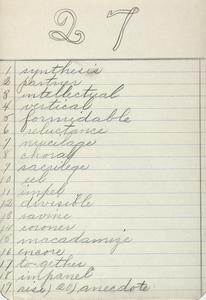 27
1 synthesis
2 partner
3 intellectual
4 vertical
5 formidable
6 reluctance
7 mucilage
8 choral
9 sacrilege
10 eel
11 impel
12 divisible
13 ravine
14 coroner
15 macadamize
16 encore
17 together
18 impanel
19 rise) as) anecdote